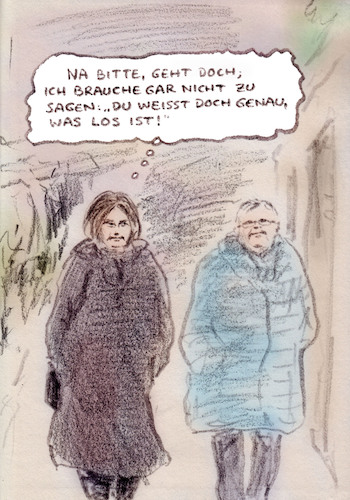 NA BITTE, GEHT DOCH;
ICH BRAUCHE GAR NICHT ZU
SAGEN: „DU WEISST DOCH GENAU,
WAS LOS IST!"